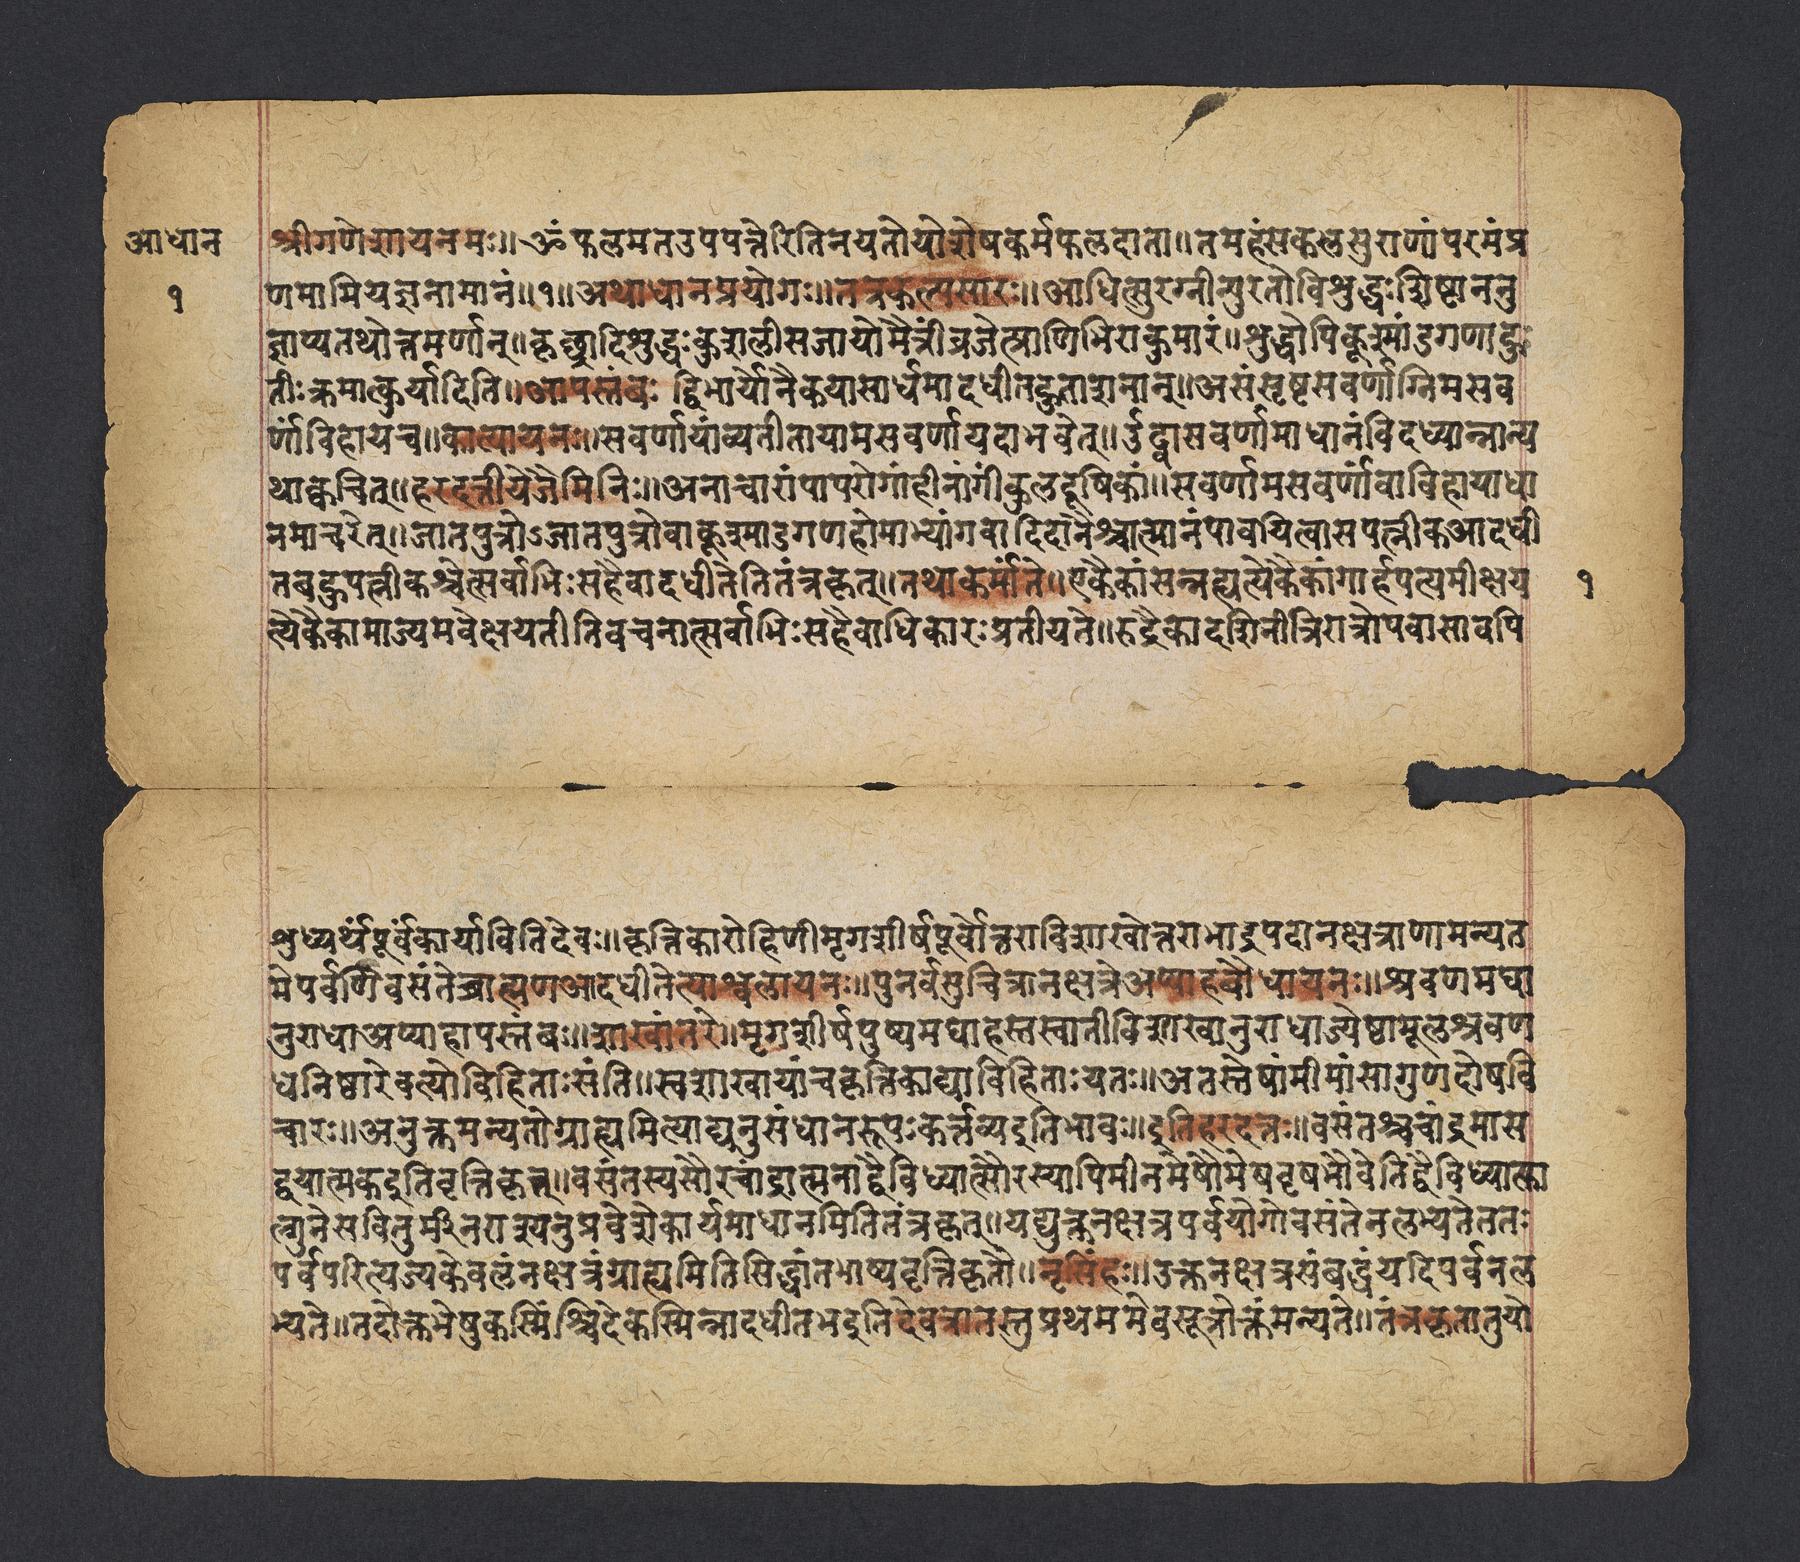 आधान
१
श्रीगणेशायनमः॥ॐफलमतउपपत्तेरितिनयतोयोशेषकर्मफलदाता॥तमहंसकलसुराणांपरमंप्र
णमामियज्ञनामानं॥१॥अथाधानप्रयोगः॥तत्रकल्पसारः॥आधित्सुरग्नीन्सुरतौविशुद्धःशिष्टाननु
ज्ञाप्यतथोत्तमर्णान्॥कृछ्रादिशुद्धःकुशलीसजायोमैत्रींव्रजेत्प्राणिभिराकुमारं॥शुद्धौपिकूश्मांडगणाहु
तीःक्रमात्कुर्यादिति॥आपस्तंबः द्विभार्योनैकयासार्धमादधीतहुताशनान्॥असंसृष्टसवर्णाग्निमसव
र्णांविहायच॥कात्यायनः॥सवर्णायांव्यतीतायामसवर्णायदाभवेत्॥उद्वासवर्णामाधानंविदध्यान्नान्य
थाक्वचित्॥हरदत्तीयेजैमिनिः॥अनाचारांपापरोगांहीनांगींकुलदूषिकां॥सवर्णामसवर्णांवाविहायाधा
नमाचरेत्॥जातपुत्रोऽजातपुत्रोवाकूश्मांडगणहोमाभ्यांगवादिदानैश्चात्मानंपावयित्वासपत्नीकआदधी
तबहुपत्नीकश्चेत्सर्वाभिःसहैवादधीतेतितंत्रकृत्॥तथाकर्मांते॥एकैकांसन्नह्यत्येकैकांगार्हपत्यमीक्षय
१
त्येकैकामाज्यमवेक्षयतीतिवचनात्सर्वाभिःसहैवाधिकारःप्रतीयते॥रुद्रैकादशिनीत्रिरात्रोपवासावपि
शुध्यर्थंपूर्वंकार्यावितिदेवः॥कृत्तिकारोहिणीमृगशीर्षपूर्वोत्तराविशाखोत्तराभाद्रपदानक्षत्राणामन्यत
मेपर्वणिवसंतेब्राह्मणआदधीतेत्याश्वलायनः॥पुनर्वसुचित्रानक्षत्रेअप्याहबौधायनः॥श्रवणमघा
नुराधाअप्याहापस्तंबः॥शाखांतरे॥मृगशीर्षपुष्यमघाहस्तस्वातीविशाखानुराधाज्येष्ठामूलश्रवण
धनिष्ठारेवत्योविहिताःसंति॥स्वशाखायांचकृत्तिकाद्याविहिताःयतः॥अतस्तेषांमीमांसागुणदोषवि
चारः॥अनुक्तमन्यतोग्राह्यमित्याद्यनुसंधानरूपःकर्त्तव्यइतिभावः॥इतिहरदत्तः॥वसंतश्चचांद्रमास
द्वयात्मकइतिवृत्तिकृत्॥वसंतस्यसौरचांद्रात्मनाद्वैविध्यात्सौरस्यापिमीनमेषौमेषवृषभौवेतिद्वैविध्यात्फा
ल्गुनेसवितुर्मीनराश्यनुप्रवेशेकार्यमाधानमितितंत्रकृत्॥यद्युक्तनक्षत्रपर्वयोगोवसंतेनलभ्यतेततः
पर्वपरित्यज्यकेवलंनक्षत्रंग्राह्यमितिसिद्धांतभाष्यवृत्तिकृतौ॥नृसिंहः॥उक्तनक्षत्रसंबद्धंयदिपर्वनल
भ्यते॥तदोक्तभेषुकस्मिंश्चिदेकस्मिन्नादधीतभइतिदेवत्रातस्तुप्रथममेवसूत्रोक्तंमन्यते॥तंत्रकृतातुयो